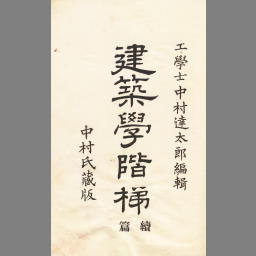 工學士中村達太郎編輯
建築學階梯
續篇
中村氏藏版